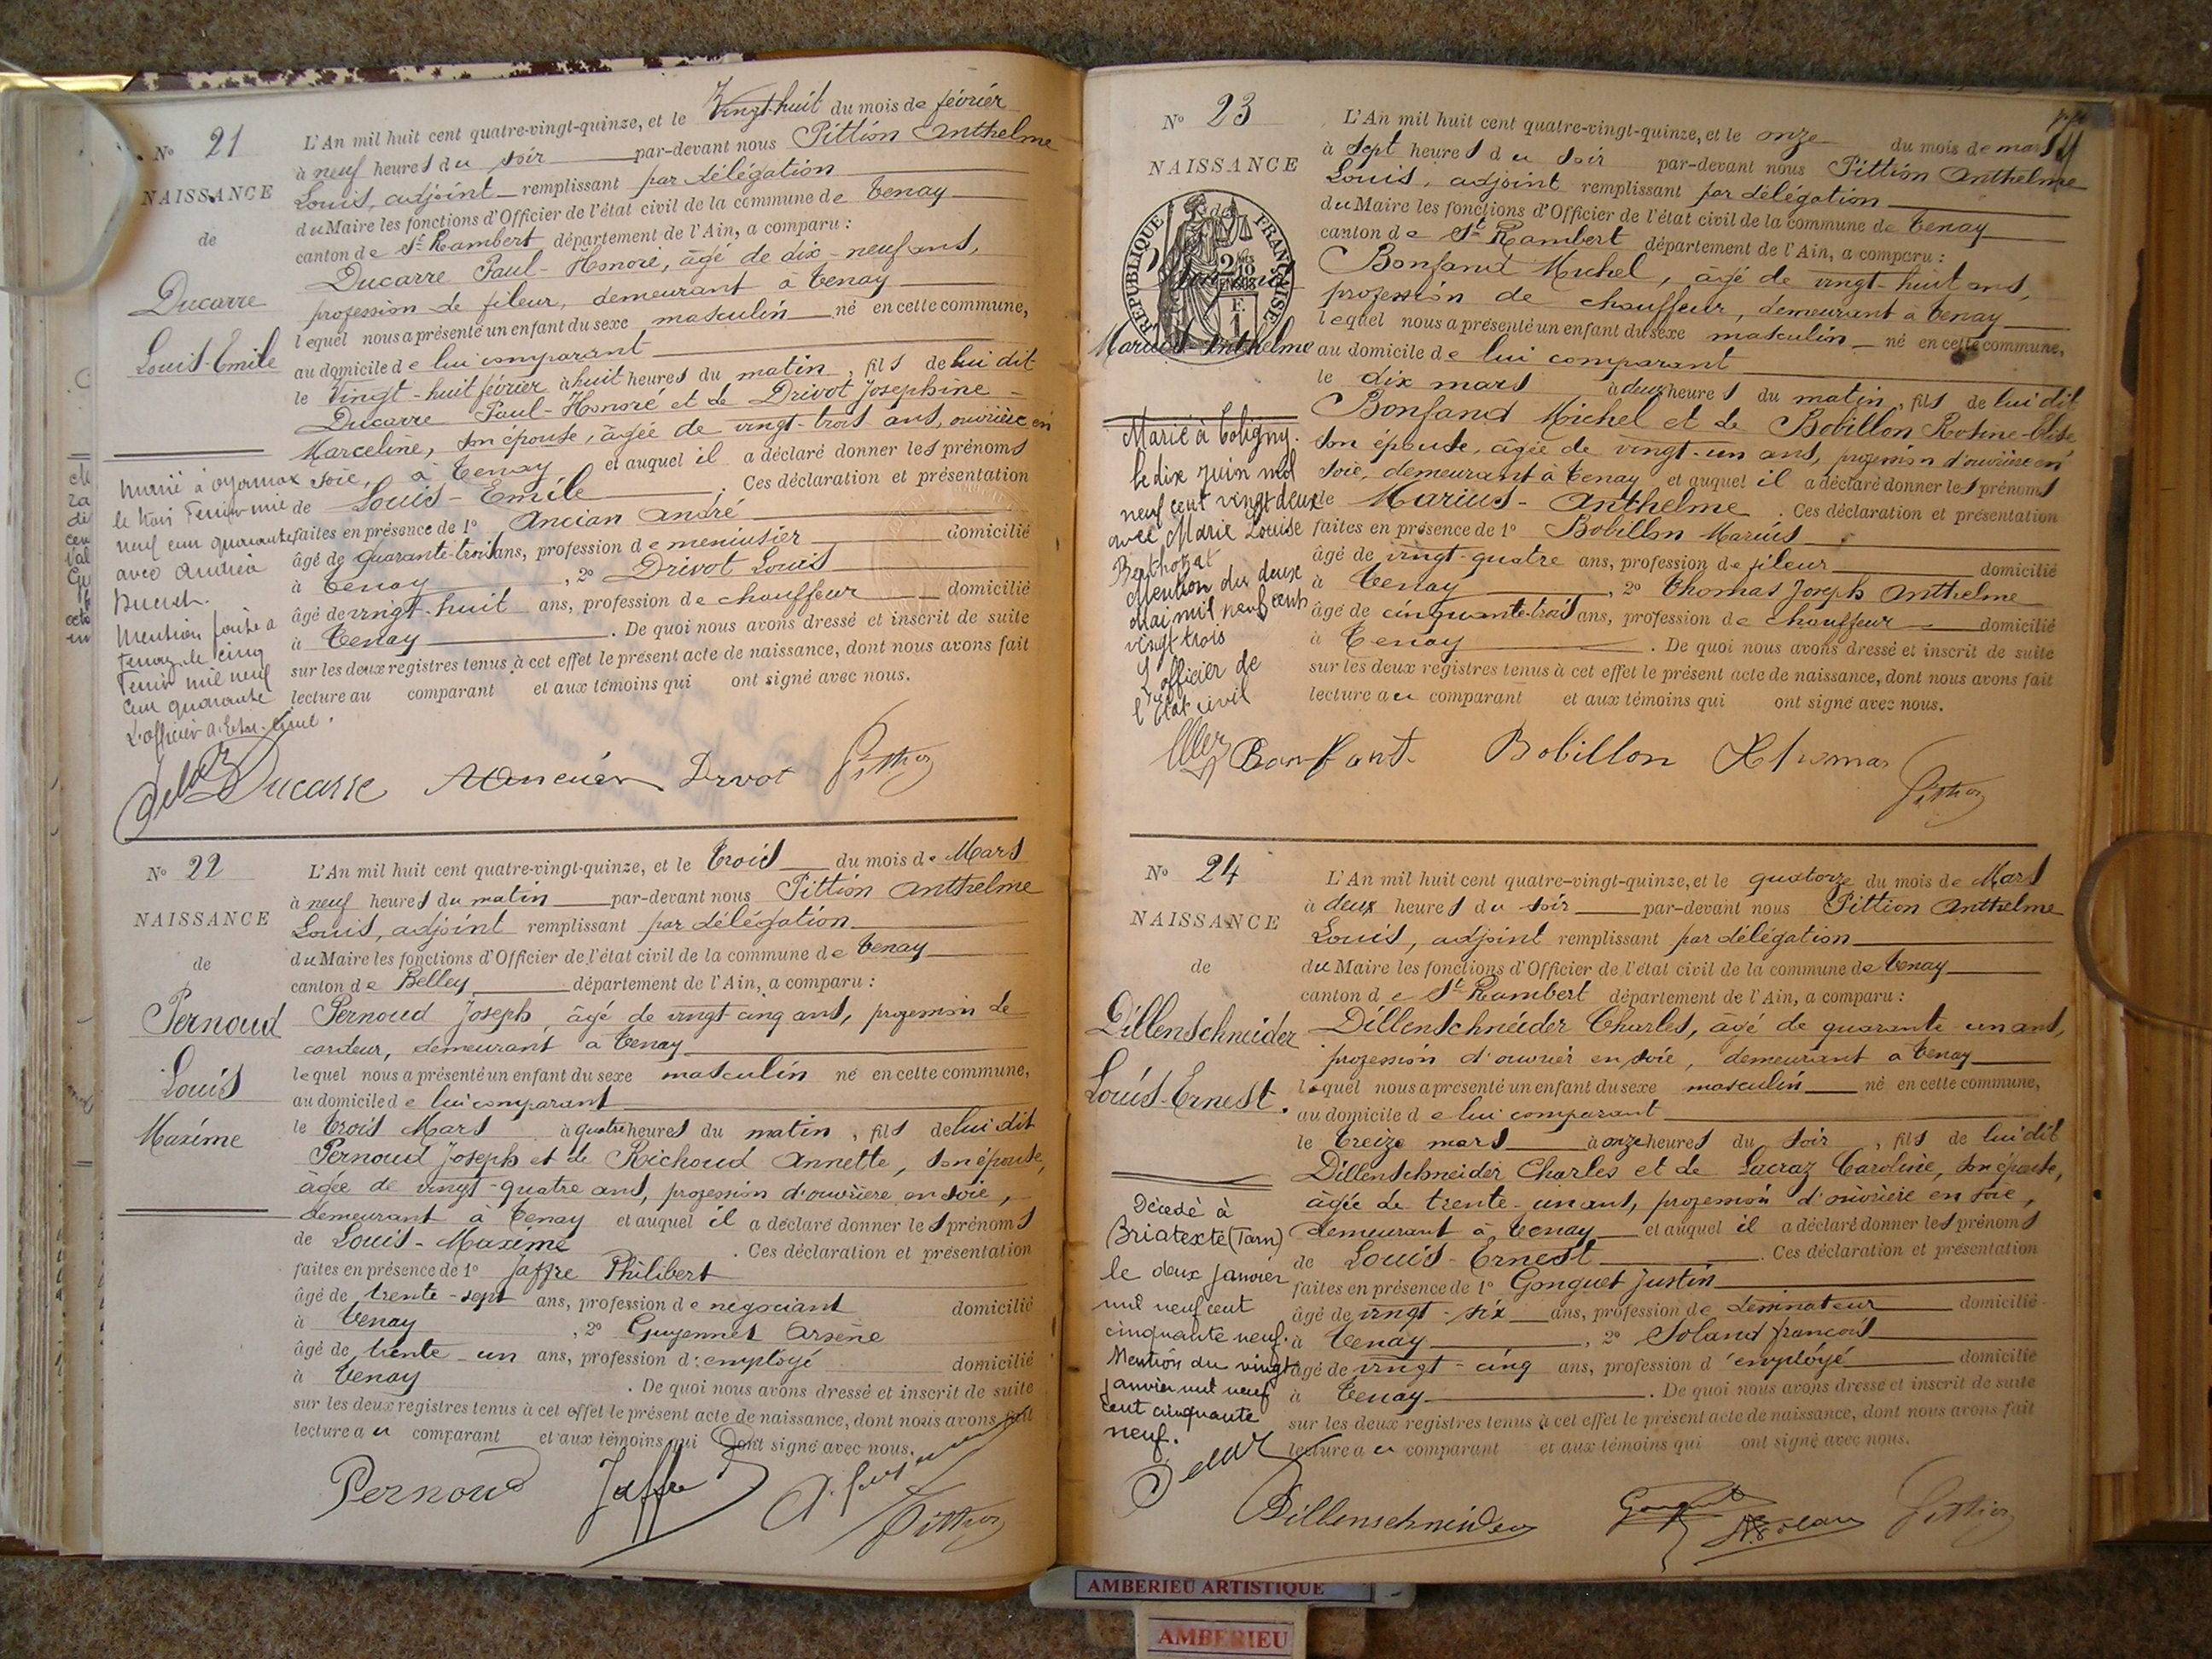 N° 21
NAISSANCE
de
Ducarre
Louis-Emile
L'An mil huit cent quatre-vingt-quinze, et le Vingt-huit du mois de février
à neuf heures du soir par-devant nous Pittion Anthelme
Louis, adjoint remplissant par délégation
du Maire les fonctions d'Officier de l'état civil de la commune de Tenay
canton de St Rambert département de l'Ain, a comparu :
Ducarre Paul-Honoré, âgé de dix-neuf ans,
profession de fileur, demeurant à Tenay
lequel nous a présenté un enfant du sexe masculin né en cette commune,
au domicile de lui comparant
le Vingt-huit février à huit heures du matin, fils de lui dit
Ducarre Paul-Honoré et de Drivot Josephine
Marceline, son épouse, âgée de vingt-trois ans, ouvrière en
soie, à Tenay et auquel il a déclaré donner les prénoms
de Louis-Emile. Ces déclaration et présentation
faites en présence de 1° Ancian André
âgé de quarante-trois ans, profession de menuisier domicilié
à Tenay, 2° Drivot Louis
âgé de vingt-huit ans, profession de chauffeur domicilié
à Tenay. De quoi nous avons dressé et inscrit de suite
sur les deux registres tenus à cet effet le présent acte de naissance, dont nous avons fait
lecture au comparant et aux témoins qui ont signé avec nous.
Marié à Oyonnax
le trois Février mil
neuf cent quarante
avec Andréa
Mention faite à
Tenay le cinq
Février mil neuf
cent quarante
L'officier d'Etat-Civil.
Ducarre Drivot Pittion
N° 22
NAISSANCE
de
Pernoud
Louis
Maxime
L'An mil huit cent quatre-vingt-quinze, et le trois du mois de Mars
à neuf heures du matin par-devant nous Pittion Anthelme
Louis, adjoint remplissant par délégation
du Maire les fonctions d'Officier de l'état civil de la commune de Tenay
canton de Belley département de l'Ain, a comparu :
Pernoud Joseph, âgé de vingt-cinq ans, profession de
cardeur, demeurant à Tenay
lequel nous a présenté un enfant du sexe masculin né en cette commune,
au domicile de lui comparant
le trois Mars à quatre heures du matin, fils de lui dit
Pernoud Joseph et de Richoud Annette, son épouse,
âgée de vingt-quatre ans, profession d'ouvrière en soie,
demeurant à Tenay et auquel il a déclaré donner les prénoms
de Louis-Maxime. Ces déclaration et présentation
faites en présence de 1° Jaffre Philibert
âgé de trente-sept ans, profession de négociant domicilié
à Tenay, 2° Guyennet Arsène
âgé de trente-un ans, profession d'employé domicilié
à Tenay. De quoi nous avons dressé et inscrit de suite
sur les deux registres tenus à cet effet le présent acte de naissance, dont nous avons fait
lecture au comparant et aux témoins qui ont signé avec nous.
Pernoud Jaffre
Pittion
N° 23
NAISSANCE
RÉPUBLIQUE FRANÇAISE
Marius-Anthelme
L'An mil huit cent quatre-vingt-quinze, et le onze du mois de mars
à sept heures du soir par-devant nous Pittion Anthelme
Louis, adjoint remplissant par délégation
du Maire les fonctions d'Officier de l'état civil de la commune de Tenay
canton de St Rambert département de l'Ain, a comparu :
Bonfand Michel, âgé de vingt-huit ans,
profession de chauffeur, demeurant à Tenay
lequel nous a présenté un enfant du sexe masculin né en cette commune,
au domicile de lui comparant
le dix mars à deux heures du matin, fils de lui dit
Bonfand Michel et de Bobillon Rosine-Elise
son épouse, âgée de vingt-un ans, profession d'ouvrière en
soie, demeurant à Tenay et auquel il a déclaré donner les prénoms
de Marius-Anthelme. Ces déclaration et présentation
faites en présence de 1° Bobillon Marius
âgé de vingt-quatre ans, profession de fileur domicilié
à Tenay, 2° Thomas Joseph Anthelme
âgé de cinquante-trois ans, profession de chauffeur domicilié
à Tenay. De quoi nous avons dressé et inscrit de suite
sur les deux registres tenus à cet effet le présent acte de naissance, dont nous avons fait
lecture au comparant et aux témoins qui ont signé avec nous.
Marié à Coligny
le dix juin mil
neuf cent vingt deux
avec Marie Louise
Berthozat
Mention du deux
mai mil neuf cent
vingt trois
L'officier de
l'Etat civil
Bonfant. Bobillon Thomas
Pittion
N° 24
NAISSANCE
de
Dillenschneider
Louis-Ernest.
L'An mil huit cent quatre-vingt-quinze, et le quatorze du mois de Mars
à deux heures du soir par-devant nous Pittion Anthelme
Louis, adjoint remplissant par délégation
du Maire les fonctions d'Officier de l'état civil de la commune de Tenay
canton de St Rambert département de l'Ain, a comparu :
Dillenschneider Charles, âgé de quarante-un ans,
profession d'ouvrier en soie, demeurant à Tenay
lequel nous a présenté un enfant du sexe masculin né en cette commune,
au domicile de lui comparant
le treize mars à onze heures du soir, fils de lui dit
Dillenschneider Charles et de Lacraz Caroline, son épouse,
âgée de trente-un ans, profession d'ouvrière en soie,
demeurant à Tenay et auquel il a déclaré donner les prénoms
de Louis-Ernest. Ces déclaration et présentation
faites en présence de 1° Gonguet Justin
âgé de vingt-six ans, profession de dessinateur domicilié
à Tenay, 2° Soland françois
âgé de vingt-cinq ans, profession d'employé domicilié
à Tenay. De quoi nous avons dressé et inscrit de suite
sur les deux registres tenus à cet effet le présent acte de naissance, dont nous avons fait
lecture au comparant et aux témoins qui ont signé avec nous.
Décédé à
Briatexte (Tarn)
le deux janvier
mil neuf cent
cinquante neuf.
Mention du vingt
janvier mil neuf
cent cinquante
neuf.
Dillenschneider Gonguet Pittion
AMBERIEU ARTISTIQUE
AMBERIEU